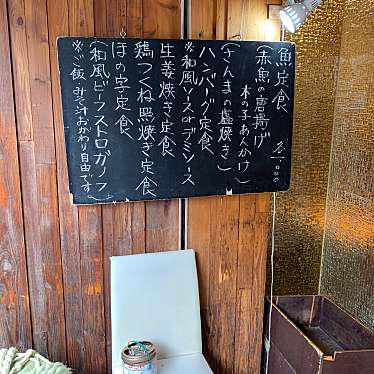 魚定食 各一,000
(赤魚の唐揚げ
木の子あんかけ)
(さんまの塩焼き)
ハンバーグ定食
※和風ソースorデミソース
生姜焼き定食
鶏つくね照焼き定食
ほの字定食
(和風ビーフストロガノフ)
※ご飯 みそ汁おかわり自由です